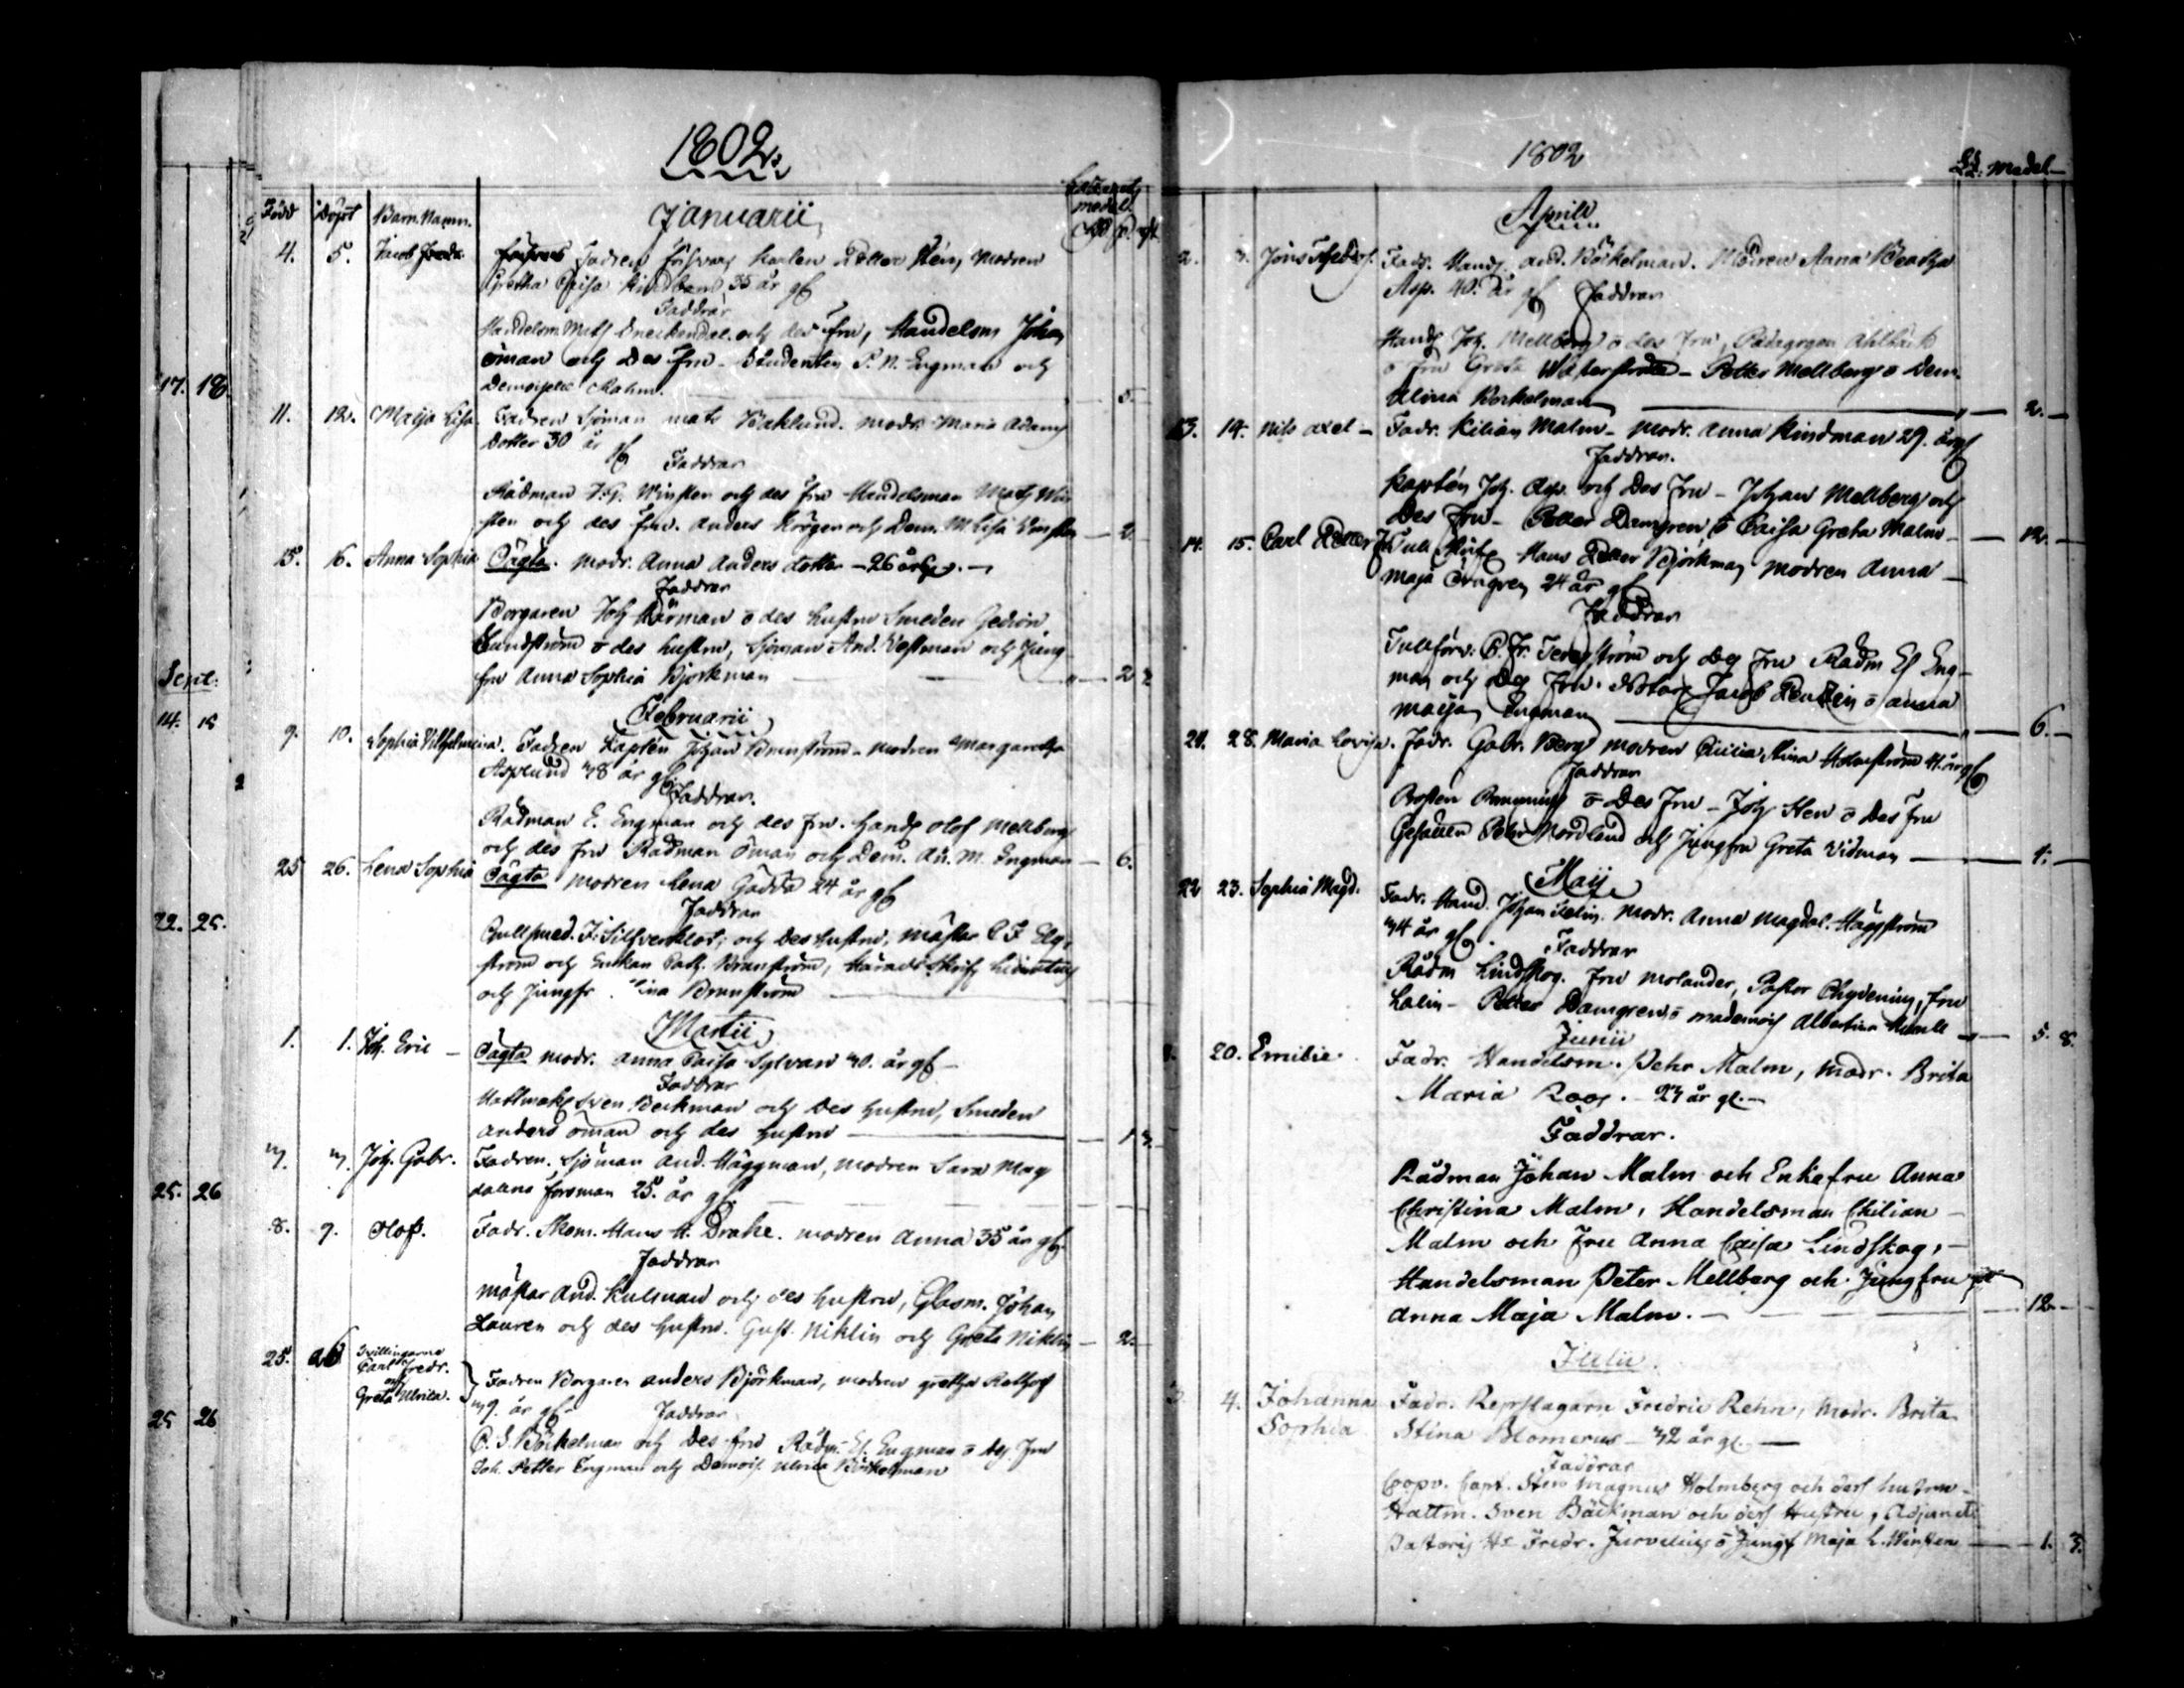 17. 18.
Sept:
14. 15
22. 25.
25. 26
25 26
1802.
Född Döpt Barn. Namn. Januarii
4. 5. Jacob Fadren Petter Modren
Gretha Caisa Lindbom 35 år gf
Faddrar
Handelsm. Mats och des Fru, Handelsm Johan
öman och Des Fru. Studenten P. N. Engman och
Demoiselle Malm. 5.
11. 12. Maija Lisa. Fadren Sjöman mats Backlund. modr. Maria Adams
Dotter 30 år gf Faddrar
Rådman Winsten och des Fru Handelsman Mats Win
sten och des Fru. Anders och Dem. M Lisa Winsten 2
15. 16. Anna Sophia Oägta. modr. Anna Anders dotter - 26 år
Faddrar
Borgaren Joh Härman o des hustru Smeden Gedion
Sundström o des hustru, Sjöman And. Vestman och Jung
fru Anna Sophia Bjorkman 2 2
Februarii
9. 10. Sophia Vilhelmina. Fadren Kapten Johan Brunström - modren Margaretha
Asplund 38 år gf Faddrar.
Rådman E. Engman och des fru. Hand Olof Mellberg
och des fru Rådman öman och Dem. An. M. Engman 6.
25 26. Lena Sophia Oägta modren Lena Gädda 24 år gf
Faddrar
Gullsmed. J. Silfverklot; och Des hustru, mästar C F Elg-
ström och Enkan Cath. Brunström, Härads Skrif
och Jungfr. Brunström
Martii
1. 1. Joh. Eric Oägta modr. anna Caisa Sylvan 40. år gf
Faddrar
Hattmak Sven Beckman och Des hustru, Smeden
anders öman och des hustru 1 3.
7. 7. Joh. Gabr. Fadren. Sjöman And. Häggman, modren Sara Mag
dalena forsman 25. år gf
8. 9. Olof. Fadr. Skom. Hans H. Drake. modren Anna 35 år gf
Faddrar
mästar And. Kulsman och des hustru, Glasm. Johan
Lauren och des hustru. Gust. Niklin och Greta Niklin 2.
25. 26 Tvillingarne
Carl Fredr.
och
Greta Ulrica. Fadren Borgaren anders Björkman, modren gretha
39. år gf Faddrar
C. G. Böckelman och Des fru Rådm. El. Engman o des Fru
Joh. Petter Engman och Demois. Ulrica Böckelman
1802
Medel
Aprill
2. 3. Jöns Fadr. Hand. And. Böckelman. Modren Anna Beatha
Asp. 40. år gf Faddrar
Hand Joh. Mellberg o des fru, Pädagogen Ahlbäck
o fru Greta - Petter Mellberg o Dem.
Ulrica Bockelman 2.
13. 14. Nils Axel - Fadr. Kilian Malm - modr. Anna Lindman 29. år gf
Faddrar.
Kapten Joh. Asp. och Des Fru - Johan Mellberg och
Des Fru - Petter Damgren o Caisa Greta Malm 12.
14. 15. Carl Petter Hans Petter Björkman modren Anna
Maja 24 år gf
Faddrar
Tullförv. C. Fr. och des Fru Rådm El Eng-
man och des Fru. Notar. Jacob o Anna
Maija Engman 6.
28. Maria Lovisa. Fadr. Gabr. Berg modren Stina 41. år gf
Faddrar
Posten o Des Fru - Joh Hen o Des fru
Gesällen Pehr Nordlund och Jungfru Greta Vidman 4.
Maij
22 23. Sophia Magd. Fadr. Hand. Johan modr. Anna Magdal. Häggström
34 år gf. Faddrar
Rådm Lindskog. Fru Molander, Pastor Chydenius, fru
- Petter Damgren o mademois Albertina 5. 8.
Junii
20. Emilie Fadr. Handelsm. Pehr Malm, modr. Brita
Maria Roos. - 23 år gl. -
Faddrar.
Rådman Johan Malm och Enkefru Anna
Christina Malm, Handelsman Chilian
Malm och Fru Anna Caisa Lindskog,
Handelsman Peter Mellberg och Jungfru
Anna Maja Malm. - 12.
Julii.
3. 4. Johanna Fadr. Repslagarn Fredric Rehn, modr. Brita
Sophia Stina Blomerus - 32 år gl. -
Faddrar
Coopv. Capt. Sten Magnus Holmberg och dess hustru -
Hattm. Sven Bäckman och dess Hustru, Adjuncti
Pastoris Hr Fredr. Jurvelius o Jungf Maja L. Winsten 1. 3.